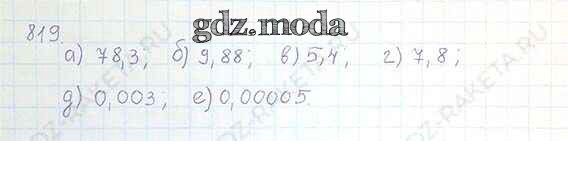 gdz.moda
819.
а) 78,3; б) 9,88; в) 5,4; г) 7,8;
д) 0,003; е) 0,00005.
GDZ-RAKETA.RU